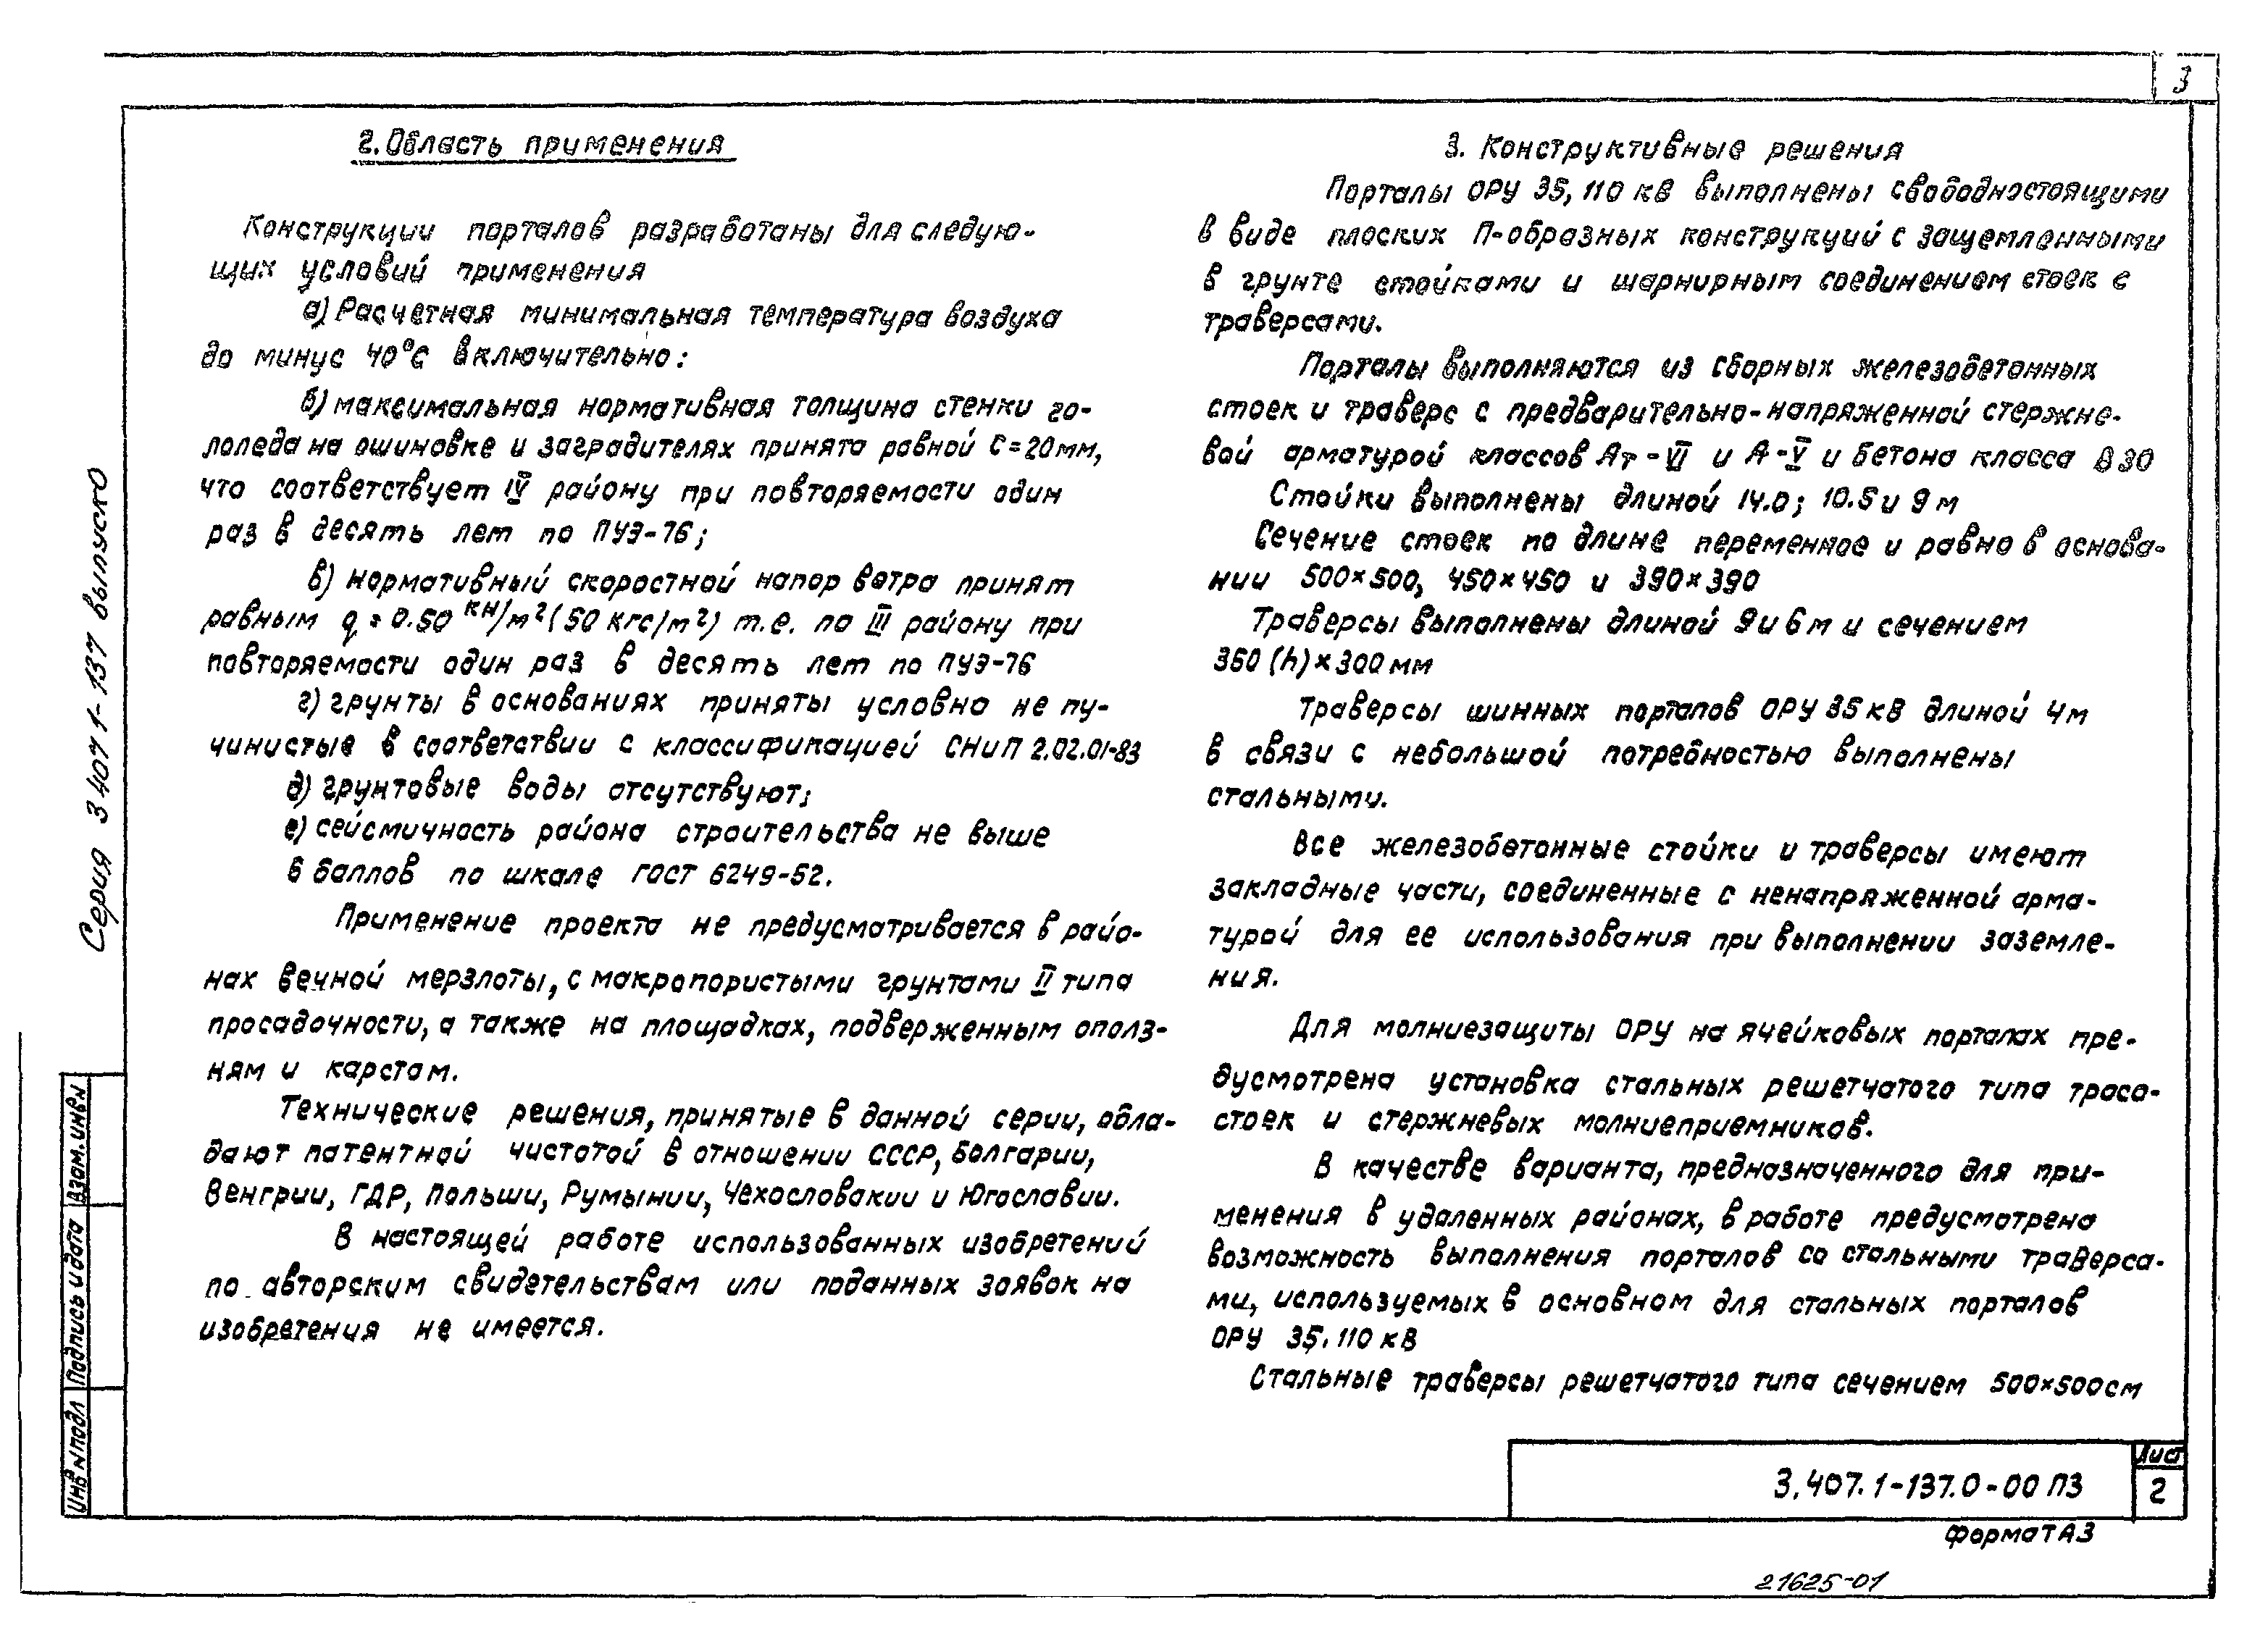 3
2. Область применения
Конструкции порталов разработаны для следую-
щих условий применения
а) Расчетная минимальная температура воздуха
до минус 40°С включительно:
б) максимальная нормативная толщина стенки го-
лоледа на ошиновке и заградителях принята равной С=20мм,
что соответствует IV району при повторяемости один
раз в десять лет по ПУЭ-76;
в) нормативный скоростной напор ветра принят
равным q=0.50 кН/м² (50 кгс/м²) т.е. по III району при
повторяемости один раз в десять лет по ПУЭ-76
г) грунты в основаниях приняты условно не пу-
чинистые в соответствии с классификацией СНиП 2.02.01-83
д) грунтовые воды отсутствуют;
е) сейсмичность района строительства не выше
6 баллов по шкале ГОСТ 6249-52.
Применение проекта не предусматривается в райо-
нах вечной мерзлоты, с макропористыми грунтами II типа
просадочности, а также на площадках, подверженным ополз-
ням и карстам.
Технические решения, принятые в данной серии, обла-
дают патентной чистотой в отношении СССР, Болгарии,
Венгрии, ГДР, Польши, Румынии, Чехословакии и Югославии.
В настоящей работе использованных изобретений
по авторским свидетельствам или поданных заявок на
изобретения не имеется.
3. Конструктивные решения
Порталы ОРУ 35, 110 кВ выполнены свободностоящими
в виде плоских П-образных конструкций с защемленными
в грунте стойками и шарнирным соединением стоек с
траверсами.
Порталы выполняются из сборных железобетонных
стоек и траверс с предварительно-напряженной стержне-
вой арматурой классов Ат-VI и А-V и бетона класса В30
Стойки выполнены длиной 14.0; 10.5 и 9 м
Сечение стоек по длине переменное и равно в основа-
нии 500×500, 450×450 и 390×390
Траверсы выполнены длиной 9 и 6 м и сечением
360 (h)×300 мм
Траверсы шинных порталов ОРУ 35 кВ длиной 4м
в связи с небольшой потребностью выполнены
стальными.
Все железобетонные стойки и траверсы имеют
закладные части, соединенные с ненапряженной арма-
турой для ее использования при выполнении заземле-
ния.
Для молниезащиты ОРУ на ячейковых порталах пре-
дусмотрена установка стальных решетчатого типа тросо-
стоек и стержневых молниеприемников.
В качестве варианта, предназначенного для при-
менения в удаленных районах, в работе предусмотрена
возможность выполнения порталов со стальными траверса-
ми, используемых в основном для стальных порталов
ОРУ 35, 110 кВ
Стальные траверсы решетчатого типа сечением 500×500см
Серия 3 407 1-137 выпуск 0
Взам. инв N
Подпись и дата
Инв N подл
3.407.1-137.0-00 ПЗ
Лист
2
Формат А3
21625-01